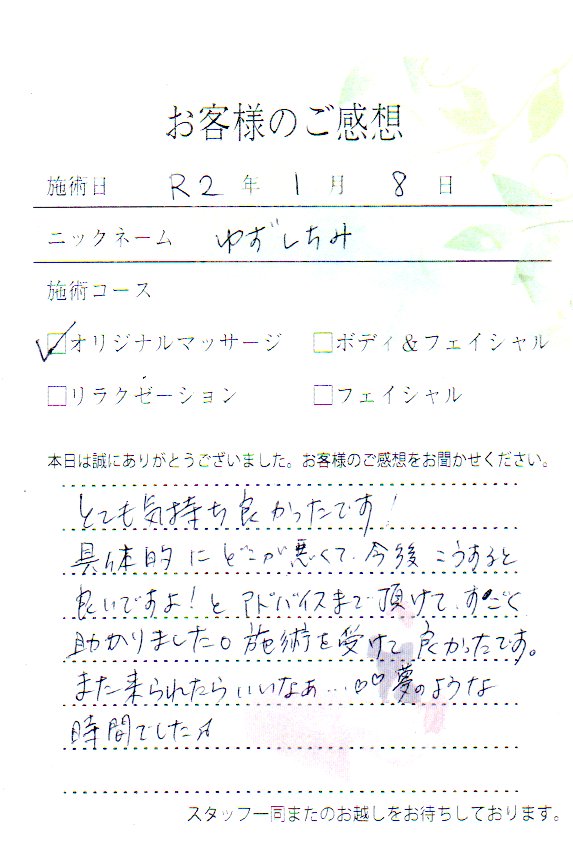 お客様のご感想
施術日 R2年 1月 8日
ニックネーム ゆずしちみ
施術コース
☑オリジナルマッサージ □ボディ&フェイシャル
□リラクゼーション □フェイシャル
本日は誠にありがとうございました。お客様のご感想をお聞かせください。
とても気持ち良かったです!
具体的にどこが悪くて、今後こうすると
良いですよ!とアドバイスまで頂けて、すごく
助かりました。施術を受けて良かったです。
また来られたらいいなぁ…♡♡夢のような
時間でした♪
スタッフ一同またのお越しをお待ちしております。